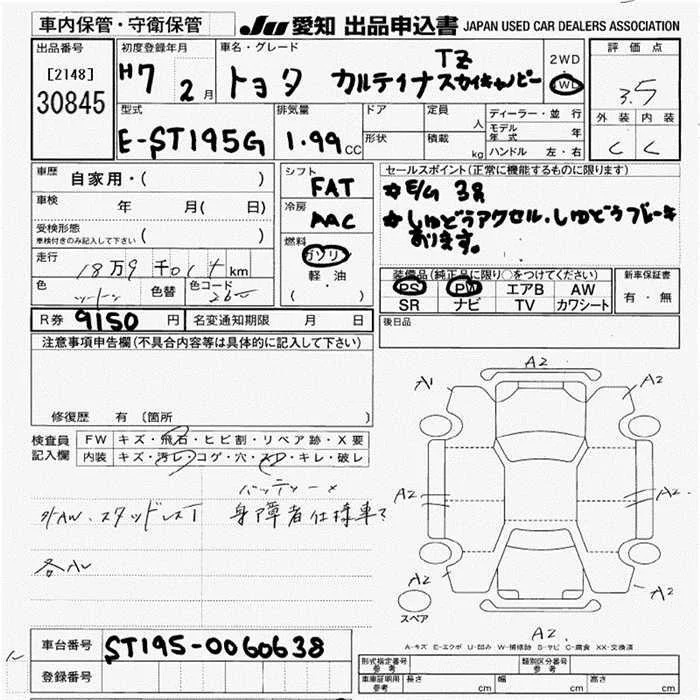 車内保管・守衛保管
JU 愛知 出品申込書 JAPAN USED CAR DEALERS ASSOCIATION
出品番号 初度登録年月 車名・グレード 評価点
[2148] H7 2月 トヨタ カルディナスカイキャノピー TZ 2WD 4WD 3.5
30845
型式 排気量 ドア 定員 人 ディーラー・並行 外装 内装
E-ST195G 1.99cc 形状 積載 kg モデル年式 年 C C
ハンドル 左・右
車歴 自家用・( ) シフト FAT セールスポイント(正常に機能するものに限ります)
車検 年 月( 日) 冷房 AAC ☆E/G 3S
受検形態 車検付きのみ記入して下さい ( ) ☆しゅどうアクセル・しゅどうブレーキ
おります。
走行 18万9千01 km 燃料 ガソリン
軽・油
( )
色 色替 色コード 装備品(純正品に限り○をつけてください) 新車保証書
PS PW エアB AW 有・無
SR ナビ TV カワシート
R券 9150円 名変通知期限 月 日 後日品
注意事項申告欄(不具合内容等は具体的に記入して下さい)
修復歴 有 〔箇所 〕
検査員記入欄 FW キズ・飛石・ヒビ割・リペア跡・X要
内装 キズ・汚レ・コゲ・穴・スレ・キレ・破レ
バッテリー×
外AW.スタッドレス 身障者仕様車
各AL
A2
A1 A2
A2 A2
A2 A2
スペア
A2
A-キズ E-エクボ U-凹み W-補修跡 S-サビ C-腐食 XX-交換済
車台番号 ST195-0060638
登録番号
形式指定番号 参考 類別区分番号 参考
車庫証明用 参考 長さ cm 幅 cm 高さ cm